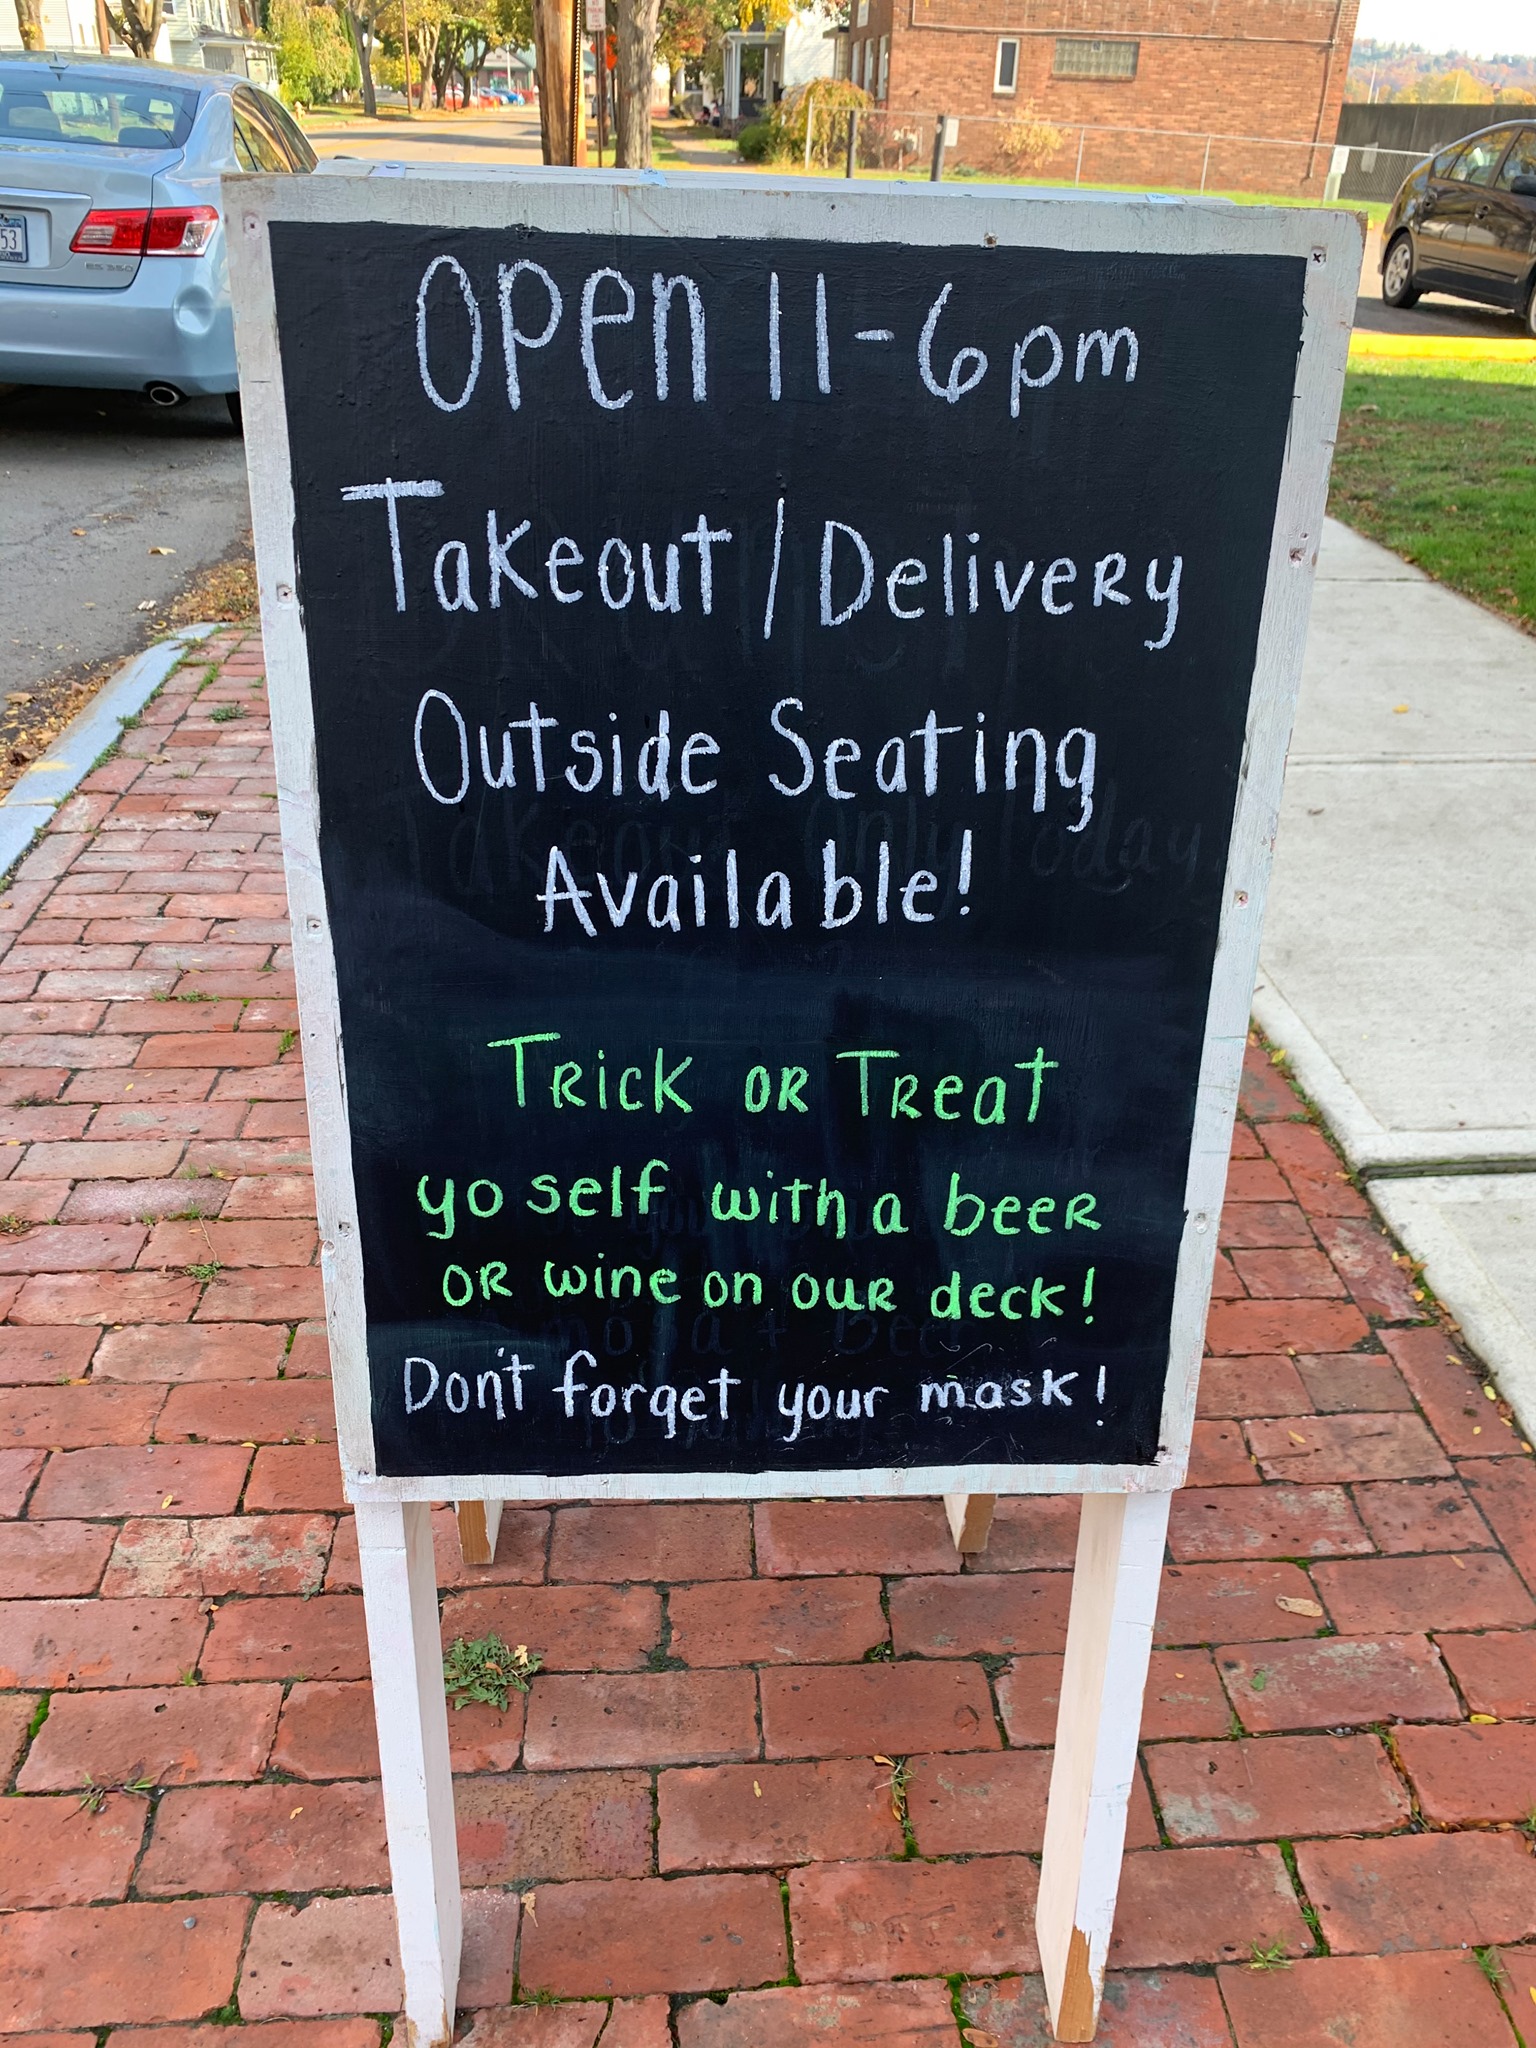 53
ES 350
Open 11-6pm
Takeout / Delivery
Outside Seating
Available!
Takeout Only Today
Trick or Treat
yo self with a beer
or wine on our deck!
Don't forget your mask!